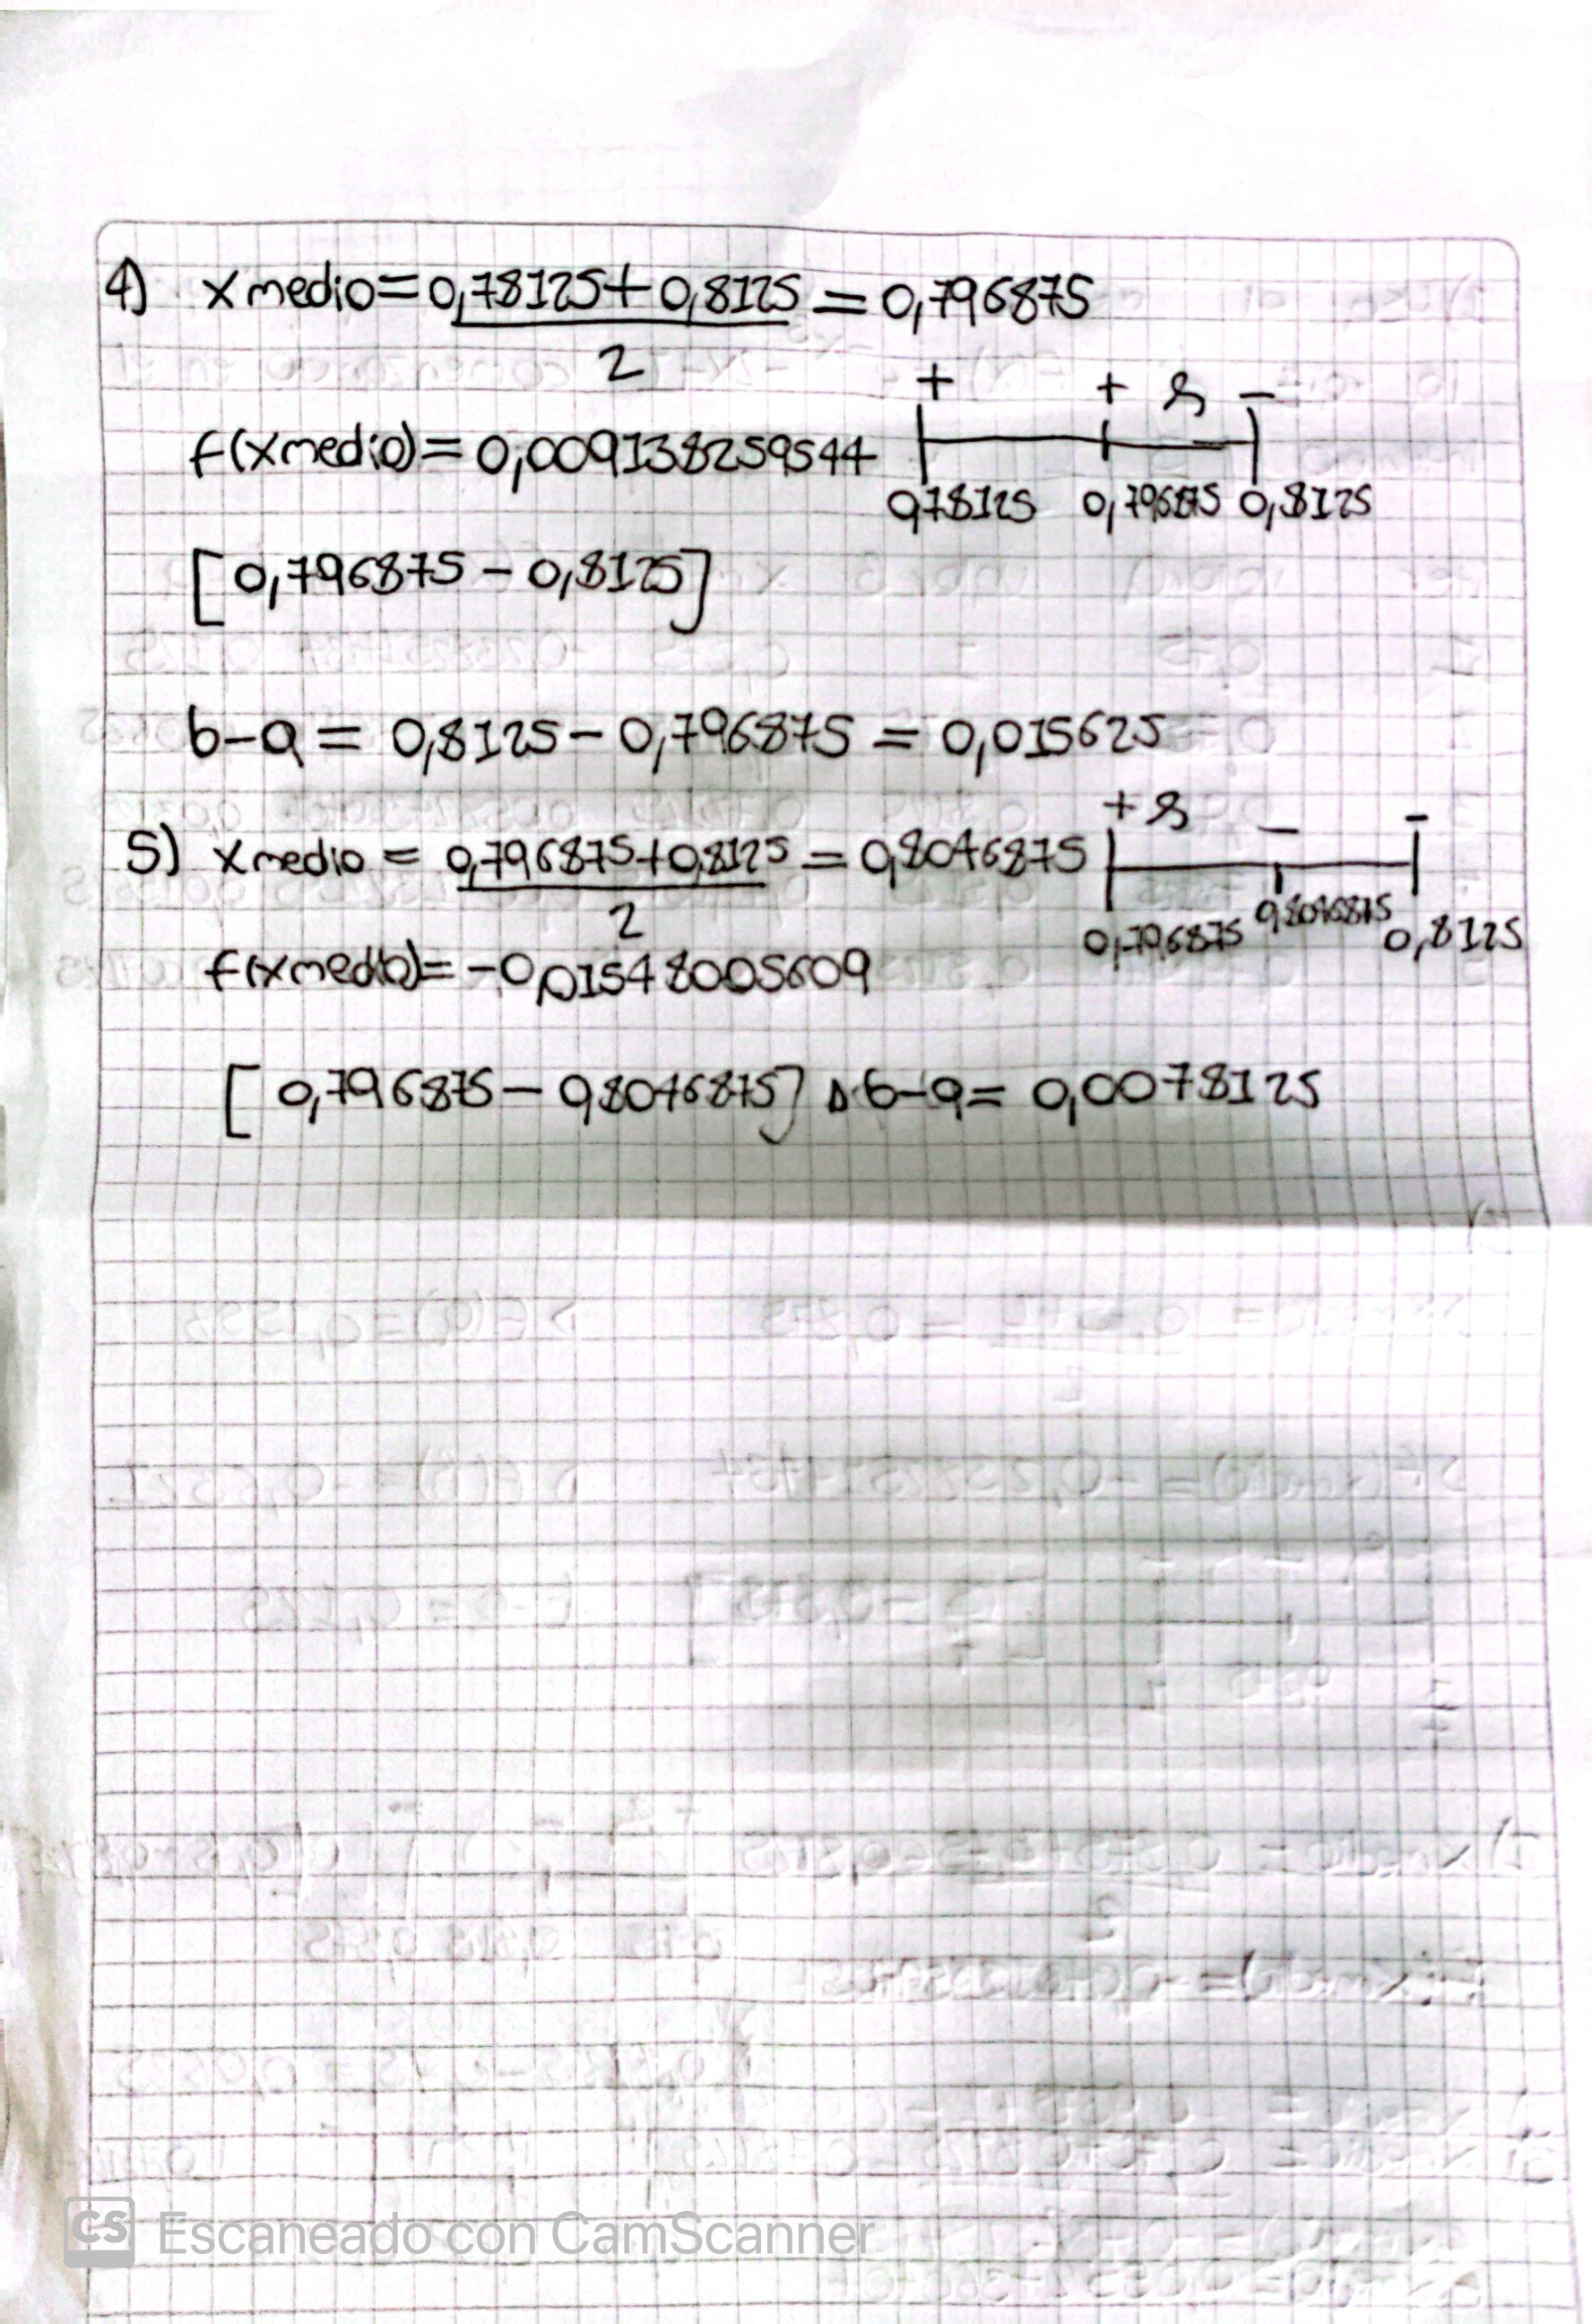 4) x medio = 0,78125 + 0,8125 = 0,796875
2
+ + -
f(x medio) = 0,009138259544
0,78125 0,796875 0,8125
[0,796875 - 0,8125]
b-a = 0,8125 - 0,796875 = 0,015625
+ - -
5) x medio = 0,796875+0,8125 = 0,8046875
2
0,796875 0,8046875 0,8125
f(x medio) = -0,01548005609
[0,796875 - 0,8046875] b-a = 0,0078125
CS Escaneado con CamScanner